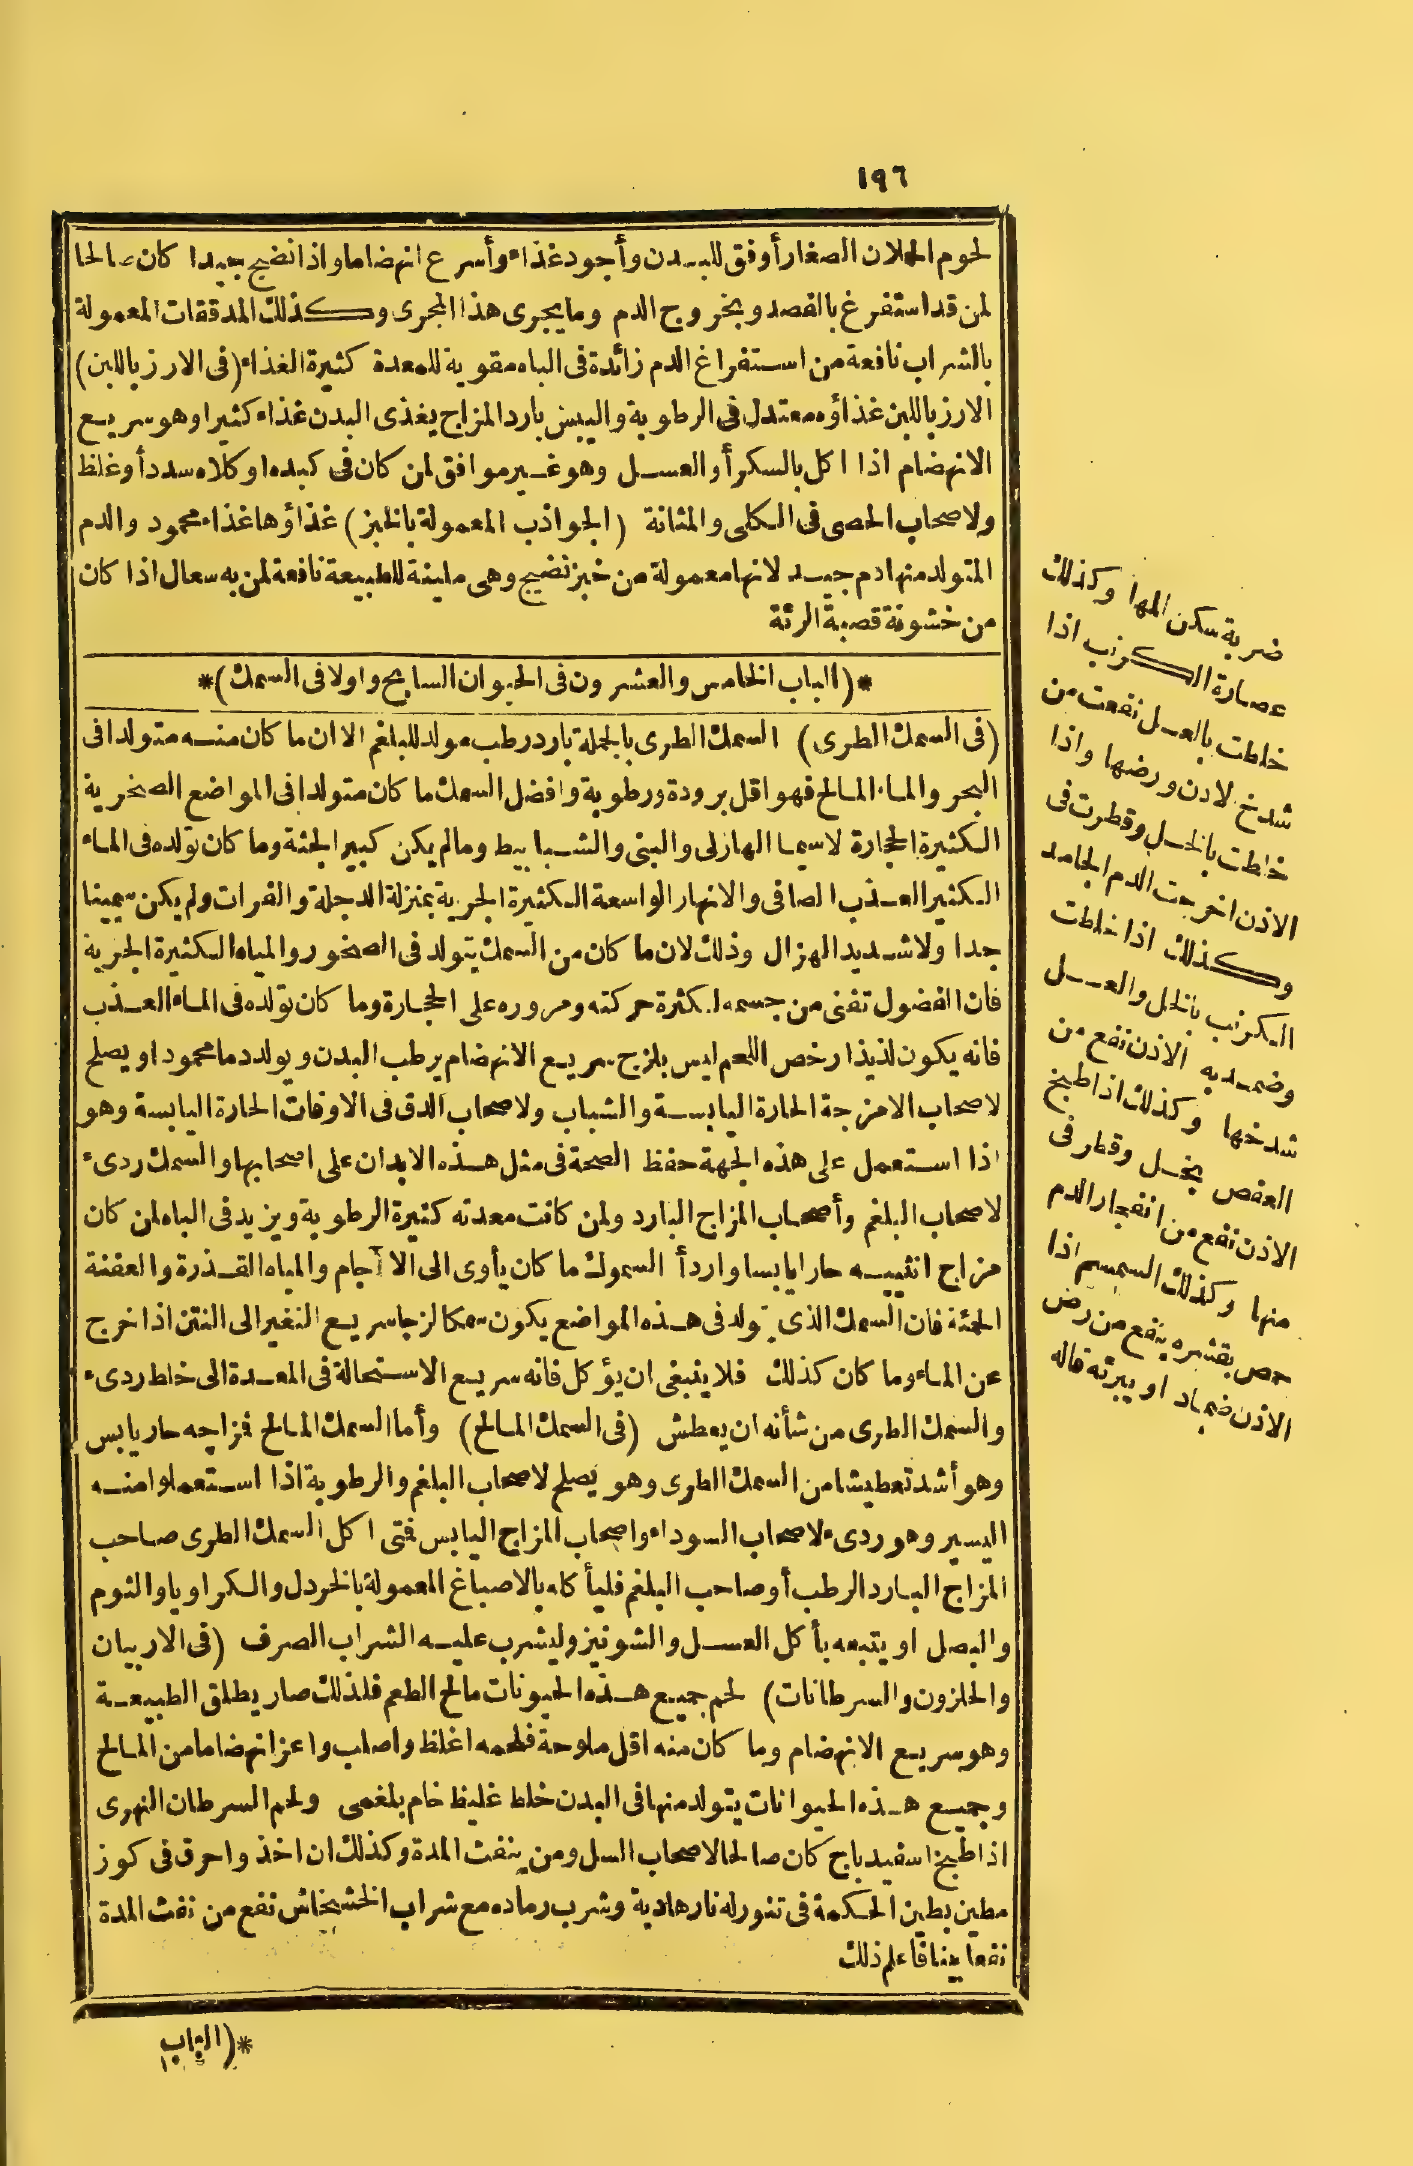 ١٩٦
لحوم الحملان الصغار أوفق للبدن وأجود غذاء وأسرع انهضاما واذا نضج جيدا كان صالحا
لمن قد استفرغ بالفصد وبخروج الدم وما يجرى هذا المجرى وكذلك المدققات المعمولة
بالشراب نافعة من استفراغ الدم زائدة فى الباه مقوية للمعدة كثيرة الغذاء (فى الارز باللبن)
الارز باللبن غذاؤه معتدل فى الرطوبة واليبس بارد المزاج يغذى البدن غذاء كثيرا وهو سريع
الانهضام اذا اكل بالسكر أو العسل وهو غير موافق لمن كان فى كبده او كلاه سدد أو غلظ
ولاصحاب الحصى فى الكلى والمثانة (الجواذب المعمولة بالخبز) غذاؤها غذاء محمود والدم
المتولد منها دم جيد لانها معمولة من خبز نضيج وهى ملينة للطبيعة نافعة لمن به سعال اذا كان
من خشونة قصبة الرئة
*(الباب الخامس والعشرون فى الحيوان السابح واولا فى السمك)*
(فى السمك الطرى) السمك الطرى بالجملة بارد رطب مولد للبلغم الا ان ما كان منه متولدا فى
البحر والماء المالح فهو اقل برودة ورطوبة وافضل السمك ما كان متولدا فى المواضع الصخرية
الكثيرة الحجارة لاسيما الهازلى والبنى والشبابيط وما لم يكن كبير الجثة وما كان تولده فى الماء
الكثير العذب الصافى والانهار الواسعة الكثيرة الجرية بمنزلة الدجلة والفرات ولم يكن سمينا
جدا ولا شديد الهزال وذلك لان ما كان من السمك يتولد فى الصخور والمياه الكثيرة الجرية
فان الفضول تفنى من جسمه لكثرة حركته ومروره على الحجارة وما كان تولده فى الماء العذب
فانه يكون لذيذا رخص اللحم ليس بلزج سريع الانهضام يرطب البدن ويولد دما محمودا ويصلح
لاصحاب الامزجة الحارة اليابسة والشباب ولاصحاب الدق فى الاوقات الحارة اليابسة وهو
اذا استعمل على هذه الجهة حفظ الصحة فى مثل هذه الابدان على اصحابها والسمك ردىء
لاصحاب البلغم وأصحاب المزاج البارد ولمن كانت معدته كثيرة الرطوبة ويزيد فى الباه لمن كان
مزاج انثييه حارا يابسا واردأ السموك ما كان يأوى الى الآجام والمياه القذرة والعفنة
الحمئة فان السمك الذى يتولد فى هذه المواضع يكون سمكا لزجا سريع التغير الى النتن اذا خرج
عن الماء وما كان كذلك فلا ينبغى ان يؤكل فانه سريع الاستحالة فى المعدة الى خلط ردىء
والسمك الطرى من شأنه ان يعطش (فى السمك المالح) وأما السمك المالح فمزاجه حار يابس
وهو أشد تعطيشا من السمك الطرى وهو يصلح لاصحاب البلغم والرطوبة اذا استعملوا منه
اليسير وهو ردىء لاصحاب السوداء واصحاب المزاج اليابس فمتى اكل السمك الطرى صاحب
المزاج البارد الرطب أو صاحب البلغم فليأكله بالاصباغ المعمولة بالخردل والكراويا والثوم
والبصل او يتبعه بأكل العسل والشونيز وليشرب عليه الشراب الصرف (فى الاربيان
والحلزون والسرطانات) لحم جميع هذه الحيونات مالح الطعم فلذلك صار يطلق الطبيعة
وهو سريع الانهضام وما كان منه اقل ملوحة فلحمه اغلظ واصلب واعز انهضاما من المالح
وجميع هذه الحيوانات يتولد منها فى البدن خلط غليظ خام بلغمى ولحم السرطان النهرى
اذا طبخ اسفيدباج كان صالحا لاصحاب السل ومن ينفث المدة وكذلك ان اخذ واحرق فى كوز
مطين بطين الحكمة فى تنور له نار هادية وشرب رماده مع شراب الخشخاش نفع من نفث المدة
نفعا بينا فاعلم ذلك
*(الباب
ضربة سكن المها وكذلك
عصارة الكرنب اذا
خلطت بالعسل نفعت من
شدخ الاذن ورضها واذا
خلطت بالخل وقطرت فى
الاذن اخرجت الدم الجامد
وكذلك اذا خلطت
الكرنب بالخل والعسل
وضمد به الاذن نفع من
شدخها وكذلك اذا طبخ
العفص بخل وقطر فى
الاذن نفع من انفجار الدم
منها وكذلك السمسم اذا
حمص بقشره ينفع من رض
الاذن ضماد او يبرئه قاله